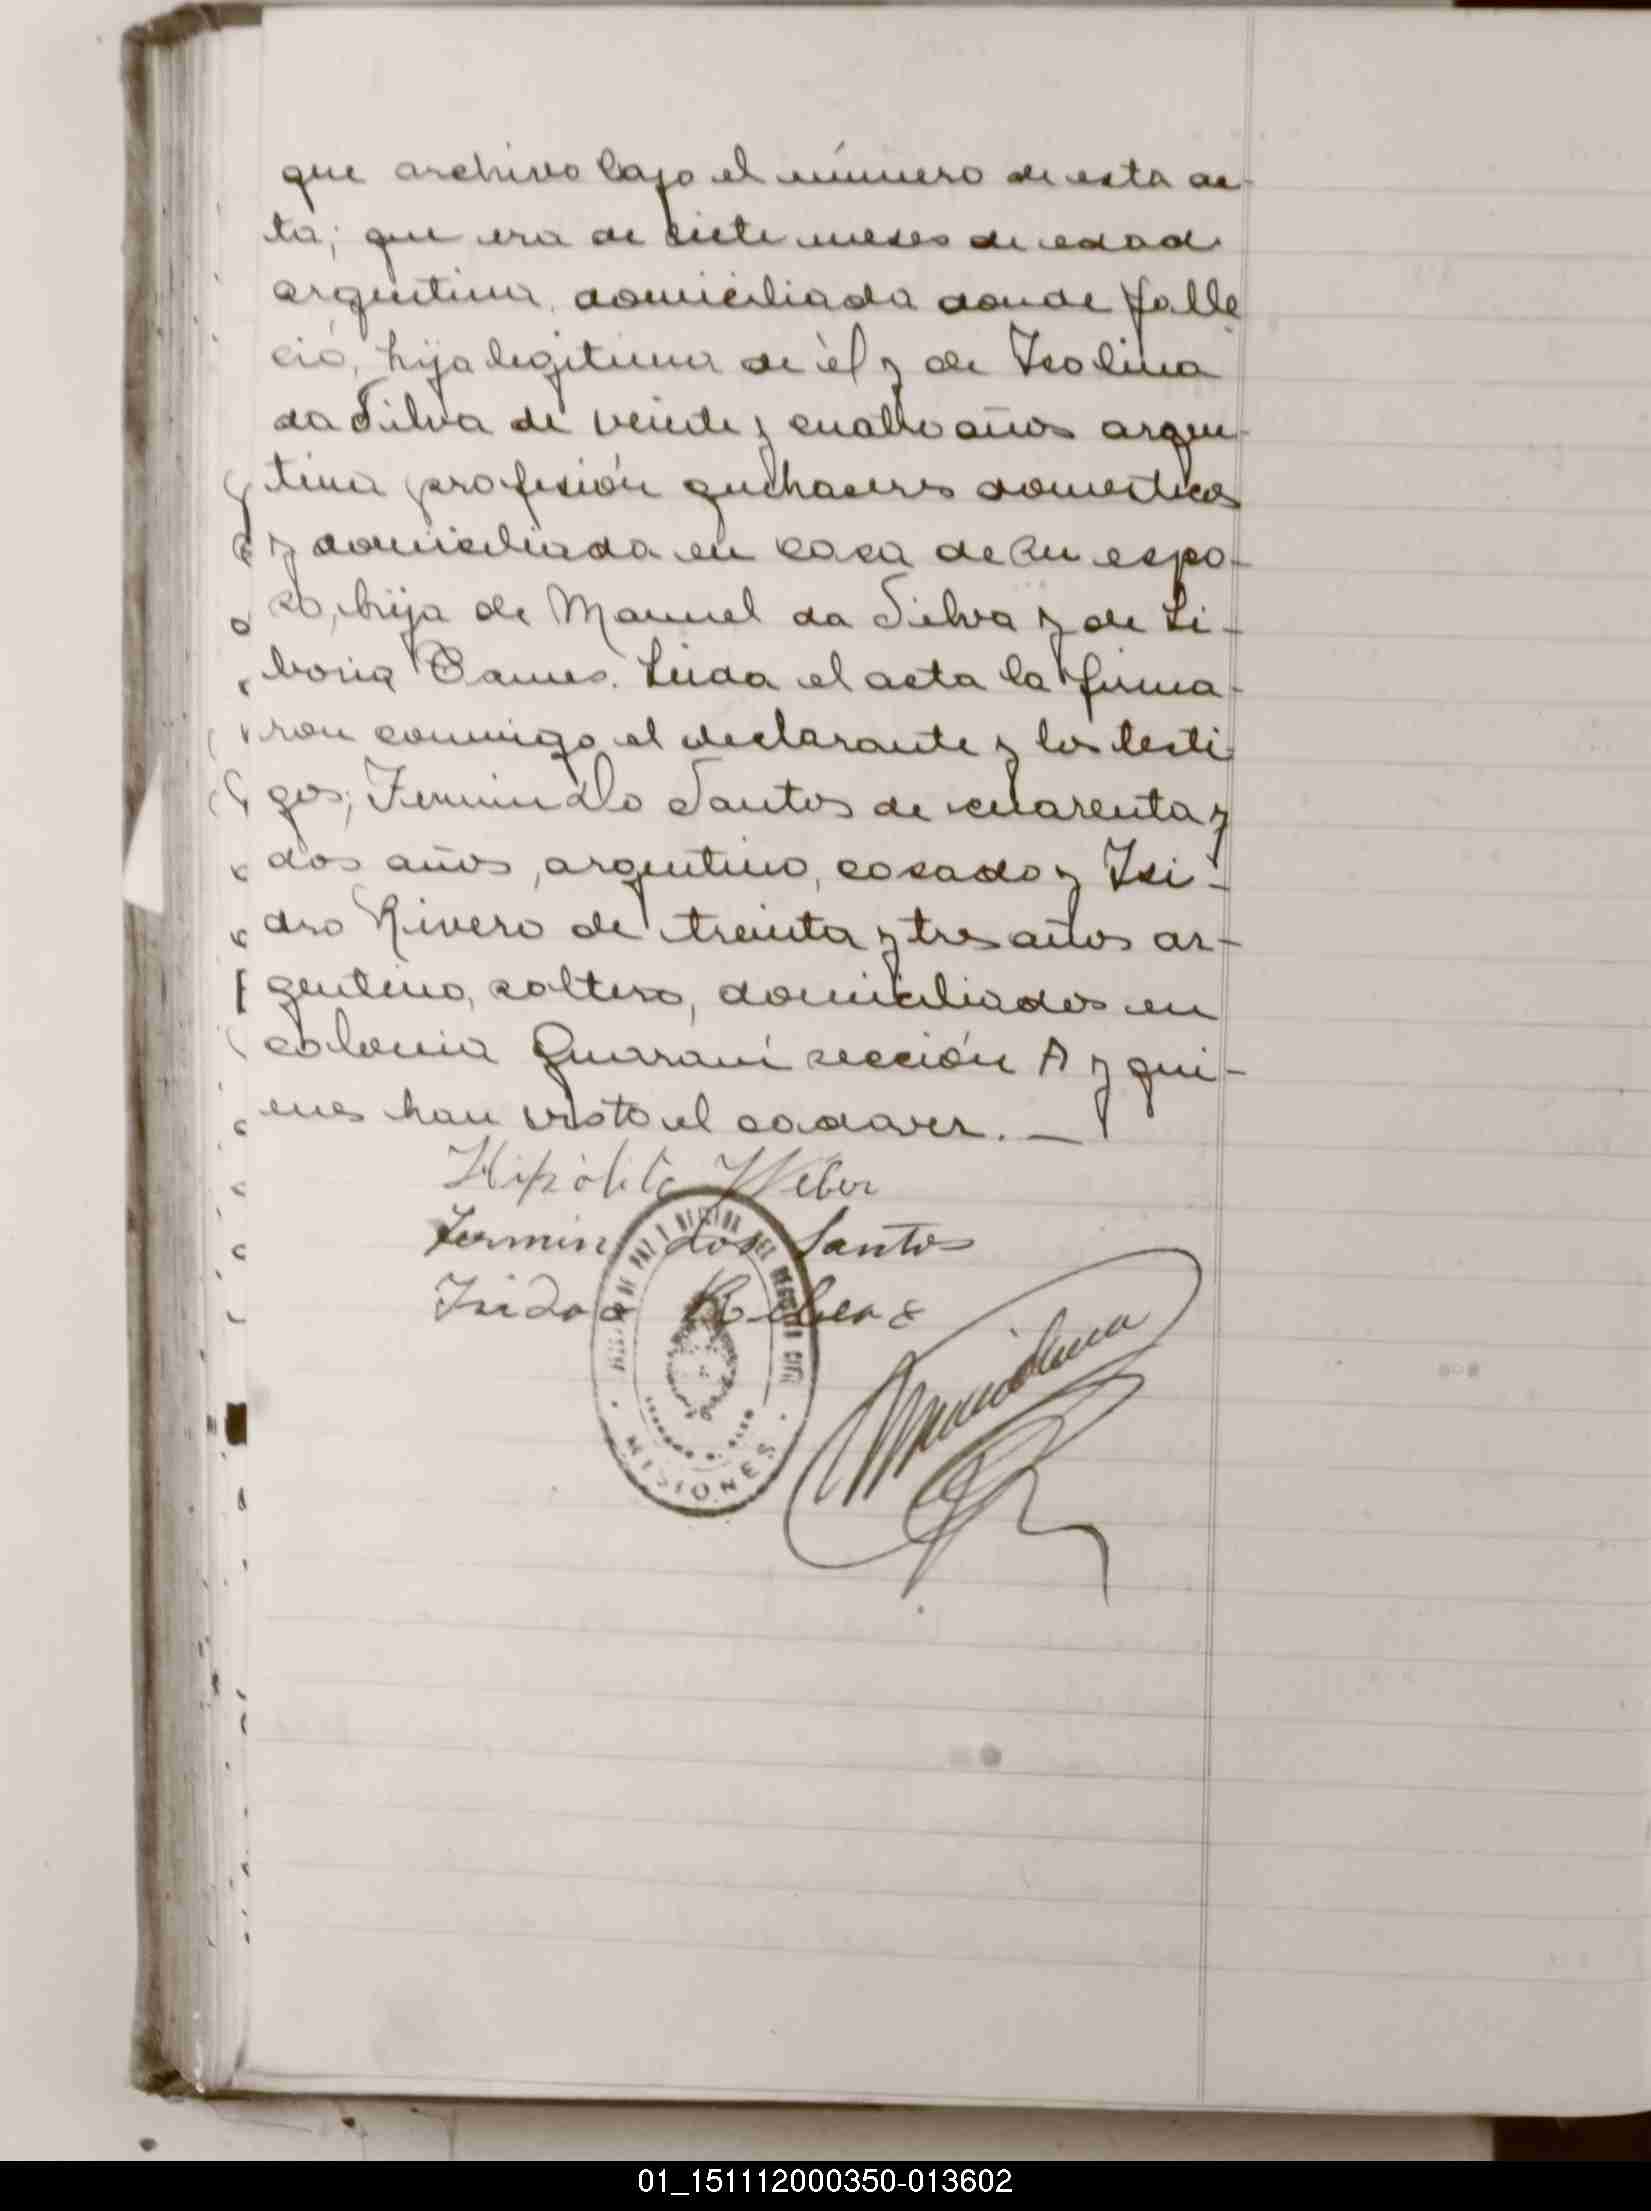 que archivo bajo el número de esta ac-
ta; que era de siete meses de edad
argentina, domiciliada donde falle
ció, hija legitima de él y de Isolina
da Silva de veinte y cuatro años argen-
tina profesión quehaceres domesticos
y domiciliada en casa de su espo-
so, hija de Manuel da Silva y de Li-
boria Leida el acta la firma-
ron conmigo el declarante y los testi
gos; Fermin do Santos de cuarenta y
dos años, argentino, casado y Isi-
dro Rivero de treinta y tres años ar-
gentino, soltero, domiciliados en
colonia Guaraní sección A y qui-
enes han visto el cadaver. —
Hipólito Weber
Fermin dos Santos
Isidro
DE PAZ Y DEL REGISTRO CIVIL
MISIONES
01_151112000350-013602